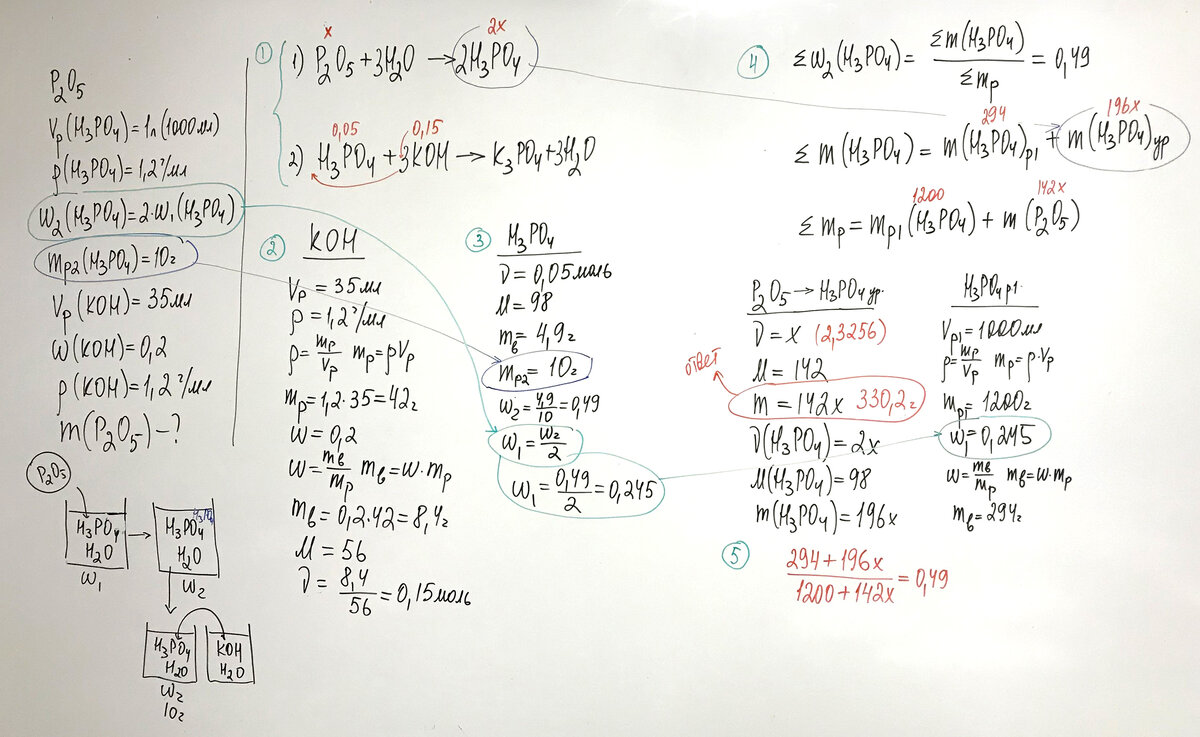 P₂O₅
Vр(H₃PO₄)=1л(1000мл)
ρ(H₃PO₄)=1,2г/мл
W₂(H₃PO₄)=2·W₁(H₃PO₄)
mр₂(H₃PO₄)=10г
Vр(KOH)=35мл
W(KOH)=0,2
ρ(KOH)=1,2г/мл
m(P₂O₅)–?
P₂O₅
H₃PO₄
H₂O
W₁
H₃PO₄ H₃PO₄
H₂O
W₂
H₃PO₄
H₂O
W₂
10г
KOH
H₂O
1
x 2x
1) P₂O₅+3H₂O → 2H₃PO₄
0,05 0,15
2) H₃PO₄+3KOH → K₃PO₄+3H₂O
2 KOH
Vр = 35мл
ρ = 1,2г/мл
ρ=mр/Vр mр=ρVр
mр=1,2·35=42г
W=0,2
W=mв/mр mв=W·mр
mв=0,2·42=8,4г
M=56
ν = 8,4/56 = 0,15моль
3 H₃PO₄
ν = 0,05моль
M=98
mв= 4,9г
mр₂= 10г
W₂=4,9/10=0,49
W₁=W₂/2
W₁=0,49/2=0,245
4 ΣW₂(H₃PO₄)= Σm(H₃PO₄)/Σmр = 0,49
294 196x
Σm(H₃PO₄)= m(H₃PO₄)р1 + m(H₃PO₄)ур
1200 142x
Σmр= mр1(H₃PO₄)+ m(P₂O₅)
P₂O₅→H₃PO₄ ур.
ν = x (2,3256)
M = 142
ответ
m = 142x 330,2г
ν(H₃PO₄)=2x
M(H₃PO₄)=98
m(H₃PO₄)=196x
H₃PO₄ р1
Vр1=1000мл
ρ=mр/Vр mр=ρ·Vр
mр1=1200г
W₁=0,245
W=mв/mр mв=W·mр
mв=294г
5 294+196x/1200+142x=0,49